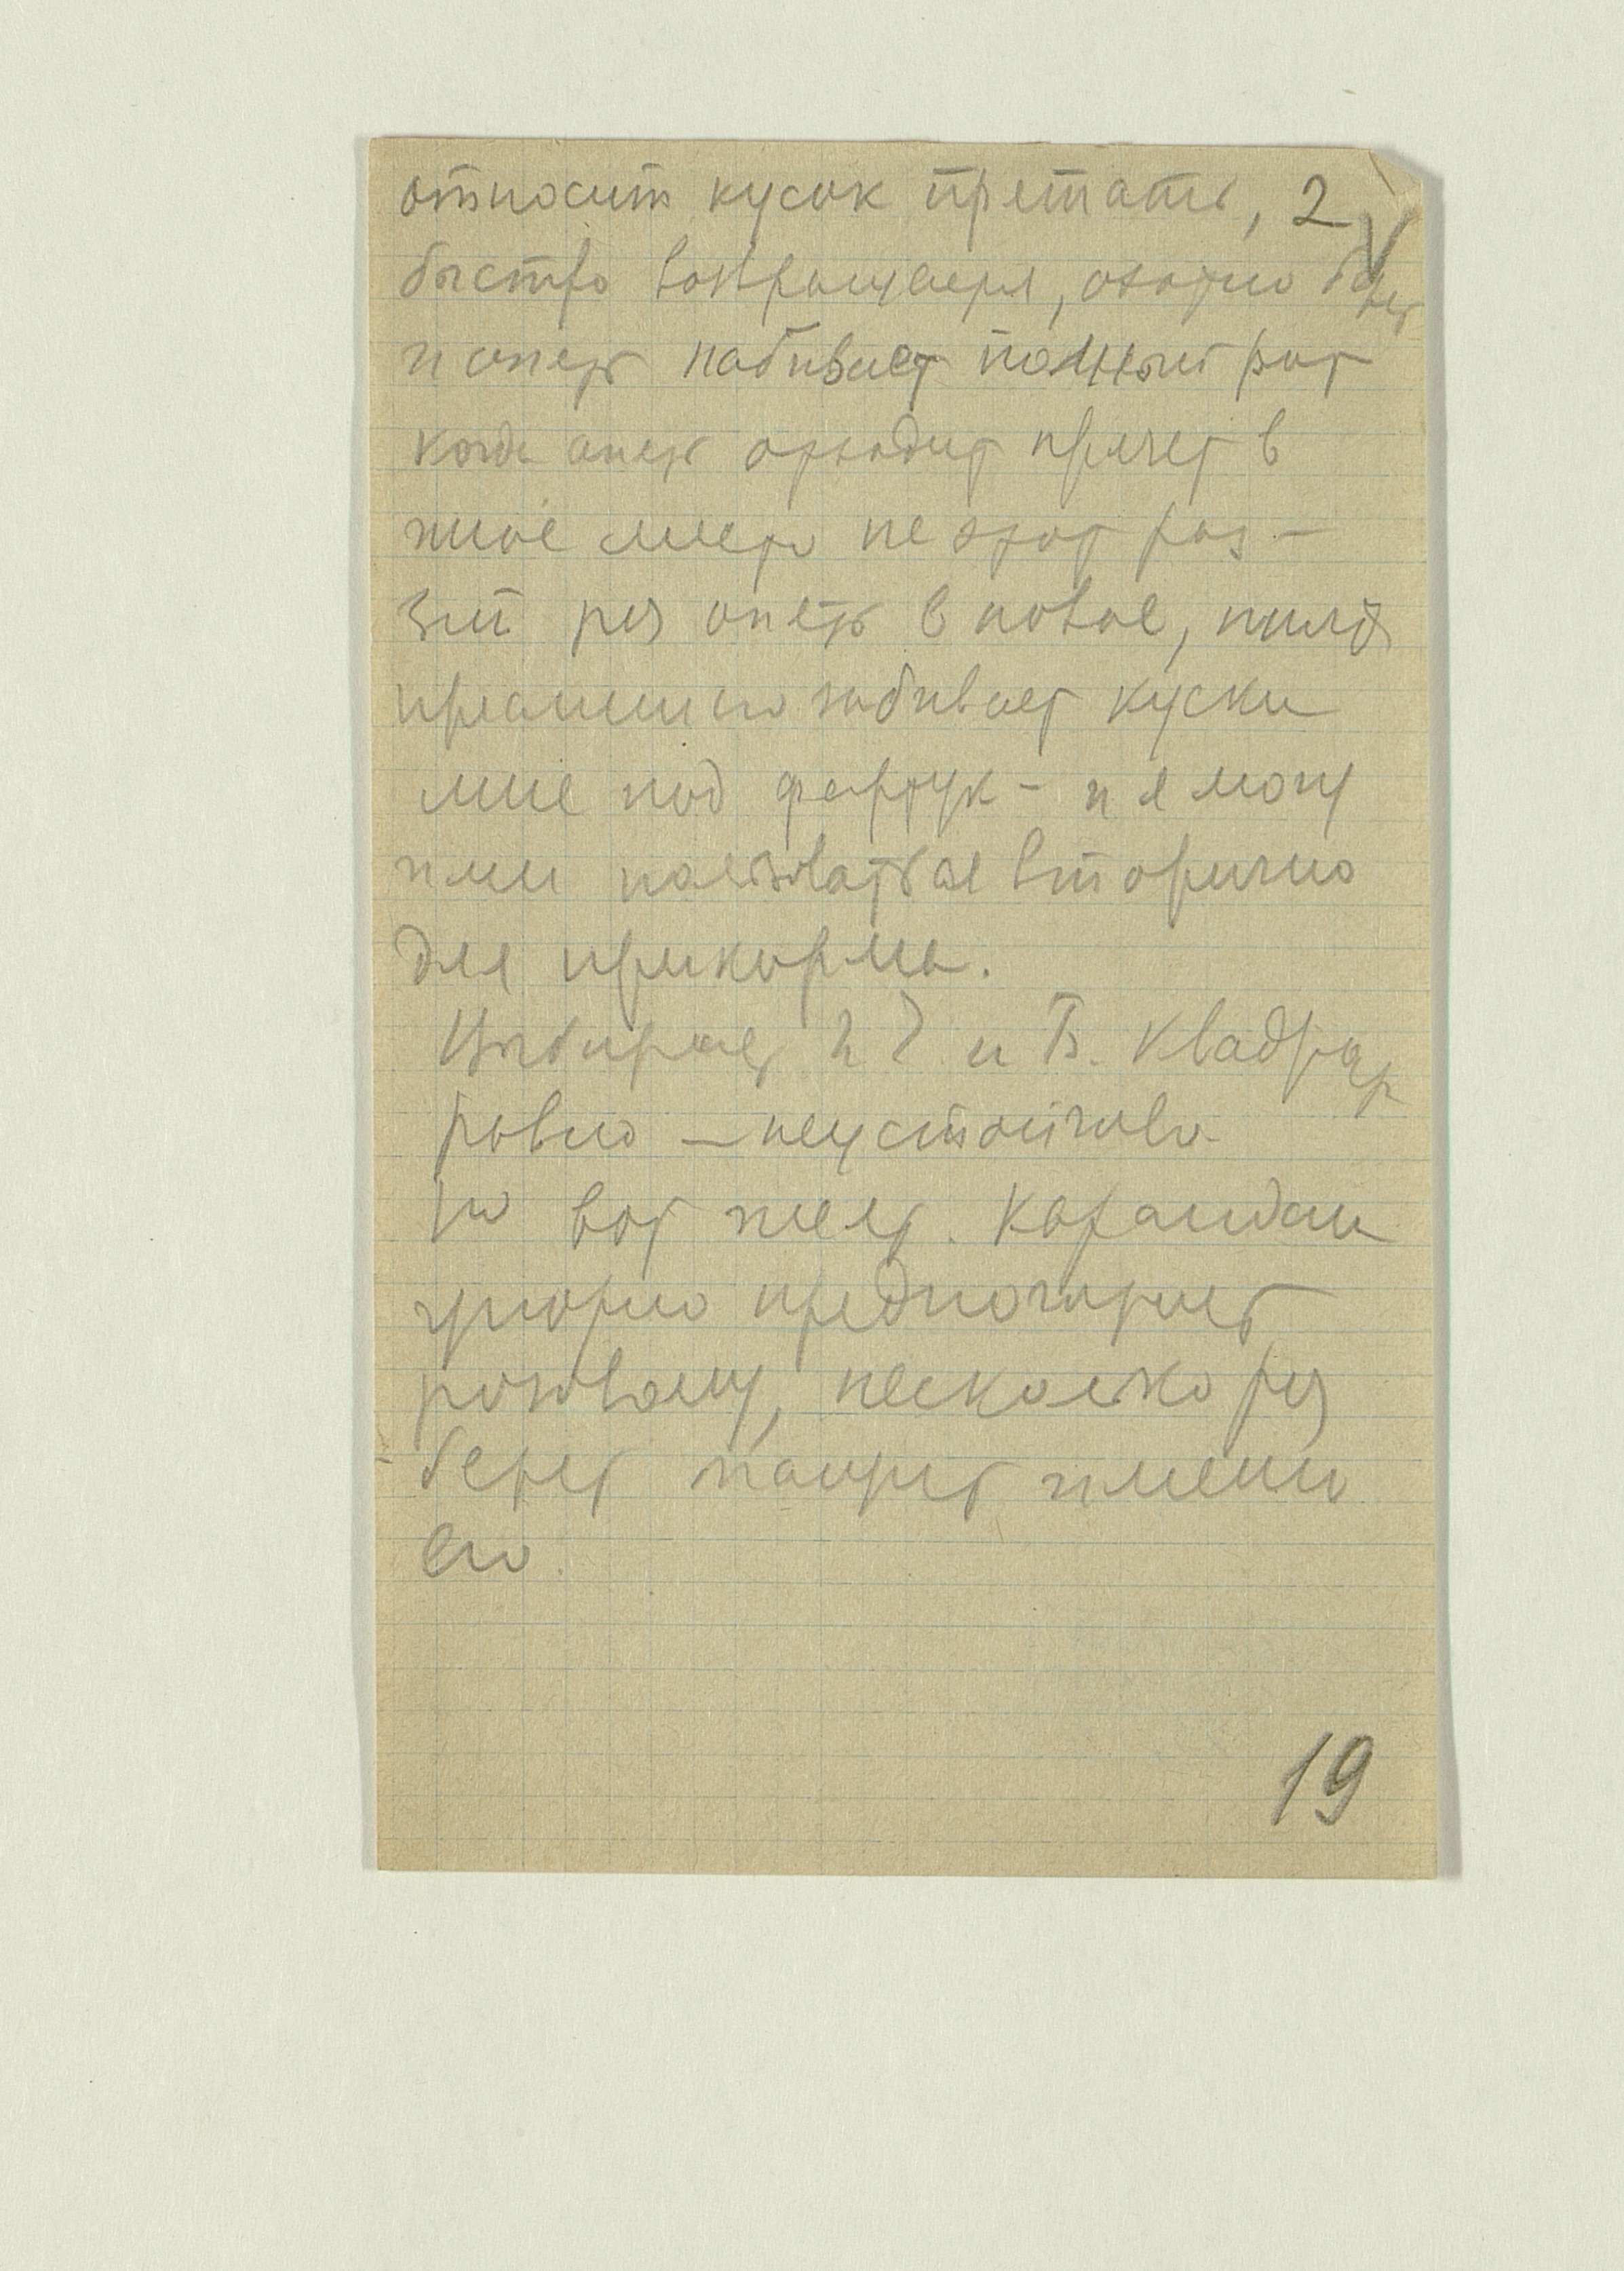 относит кусок прятать, 2
быстро возвращается, охотно берет
и опять набивает полный рот
когда опять отходит прячет в
иное место на этот раз –
3ий раз опять в новое,
забивает куски
мне под фартук – и я могу
ими пользоваться вторично
для прикорма.
Выбирает и Б. Квадрат
ровно – неустойчиво
но вот Карандаш
упорно предпочитает
розовому, несколько раз
берет именно
его.
19